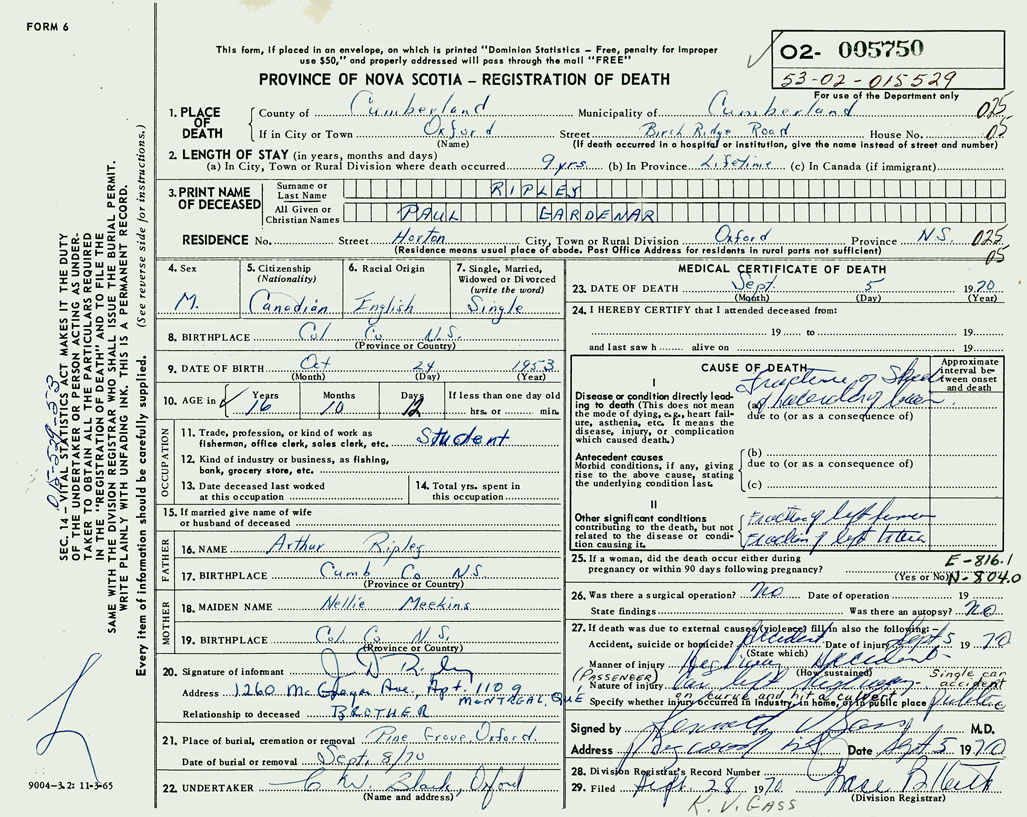 FORM 6
This form, if placed in an envelope, on which is printed "Dominion Statistics – Free, penalty for improper
use $50," and properly addressed will pass through the mail "FREE"
PROVINCE OF NOVA SCOTIA – REGISTRATION OF DEATH
O2- 005750
53-02-015529
For use of the Department only
1. PLACE OF DEATH
County of Cumberland Municipality of Cumberland 025
If in City or Town Oxford Street Birch Ridge Road House No. 05
(Name) (If death occurred in a hospital or institution, give the name instead of street and number)
2. LENGTH OF STAY (in years, months and days)
(a) In City, Town or Rural Division where death occurred 9 yrs. (b) In Province Lifetime (c) In Canada (if immigrant)
3. PRINT NAME OF DECEASED
Surname or Last Name RIPLEY
All Given or Christian Names PAUL GARDENAR
RESIDENCE No. Street Horton City, Town or Rural Division Oxford Province N.S. 025
(Residence means usual place of abode. Post Office Address for residents in rural parts not sufficient) 05
4. Sex M.
5. Citizenship (Nationality) Canadian
6. Racial Origin English
7. Single, Married, Widowed or Divorced (write the word) Single
8. BIRTHPLACE Col. Co. N.S.
(Province or Country)
9. DATE OF BIRTH Oct 24 1953
(Month) (Day) (Year)
10. AGE in Years 16 Months 10 Days 12 If less than one day old hrs. or min.
OCCUPATION
11. Trade, profession, or kind of work as fisherman, office clerk, sales clerk, etc. Student
12. Kind of industry or business, as fishing, bank, grocery store, etc.
13. Date deceased last worked at this occupation
14. Total yrs. spent in this occupation
15. If married give name of wife or husband of deceased
FATHER
16. NAME Arthur Ripley
17. BIRTHPLACE Cumb Co N.S.
(Province or Country)
MOTHER
18. MAIDEN NAME Nellie Meekins
19. BIRTHPLACE Col. Co. N.S.
(Province or Country)
20. Signature of informant J. D. Ripley
Address 1260 McGregor Ave, Apt. 1109
MONTREAL, QUE
Relationship to deceased BROTHER
21. Place of burial, cremation or removal Pine Grove, Oxford.
Date of burial or removal Sept. 8/70
22. UNDERTAKER C. W. Black, Oxford
(Name and address)
MEDICAL CERTIFICATE OF DEATH
23. DATE OF DEATH Sept. 5 1970
(Month) (Day) (Year)
24. I HEREBY CERTIFY that I attended deceased from:
19 to 19
and last saw h alive on 19
CAUSE OF DEATH
Approximate interval between onset and death
I
Disease or condition directly leading to death (This does not mean the mode of dying, e.g., heart failure, asthenia, etc. It means the disease, injury, or complication which caused death.)
Fracture of Skull
(a)
due to (or as a consequence of)
Antecedent causes
Morbid conditions, if any, giving rise to the above cause, stating the underlying condition last.
(b)
due to (or as a consequence of)
(c)
II
Other significant conditions contributing to the death, but not related to the disease or condition causing it.
Fracture of left femur
Fracture of left tibia
25. If a woman, did the death occur either during pregnancy or within 90 days following pregnancy?
(Yes or No)
E-816.1
N-804.0
26. Was there a surgical operation? No Date of operation 19
State findings Was there an autopsy? No
27. If death was due to external causes (violence) fill in also the following:–
Accident, suicide or homicide? Accident Date of injury Sept 5 1970
(State which)
Manner of injury Highway Accident
(How sustained)
(PASSENGER)
Nature of injury Car left highway Single car accident
on curve and hit a culvert
Specify whether injury occurred in industry, in home, or in public place Public
Signed by Kenneth V Gass M.D.
Address Pugwash N.S. Date Sept 5 1970
28. Division Registrar's Record Number
29. Filed Sept. 28 1970
(Division Registrar)
K. V. GASS
D5-529-53
SEC. 14 – VITAL STATISTICS ACT MAKES IT THE DUTY
OF THE UNDERTAKER OR PERSON ACTING AS UNDER-
TAKER TO OBTAIN ALL THE PARTICULARS REQUIRED
IN THE "REGISTRATION OF DEATH" AND TO FILE THE
SAME WITH THE DIVISION REGISTRAR WHO SHALL ISSUE THE BURIAL PERMIT.
WRITE PLAINLY WITH UNFADING INK. THIS IS A PERMANENT RECORD.
Every item of information should be carefully supplied. (See reverse side for instructions.)
9004-3.2: 11-3-65